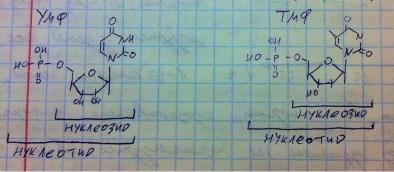 УМФ
O
NH
N
O
OH
HO-P-O
O
O
OH OH
НУКЛЕОЗИД
НУКЛЕОТИД
ТМФ
O
N
N
O
OH
HO-P-O
O
O
HO
НУКЛЕОЗИД
НУКЛЕОТИД